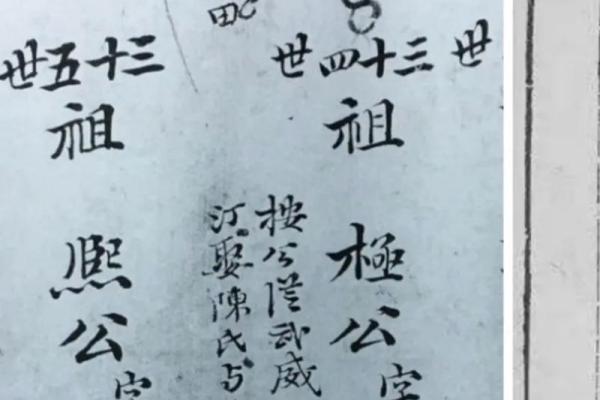 世
三十四世
祖
極公字
按公從武威
汀娶陳氏与
三十五世
祖
熙公字